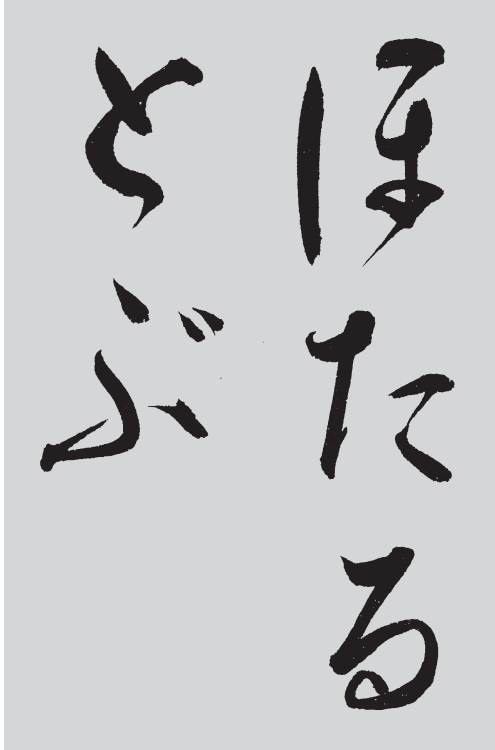 ほたる
とぶ